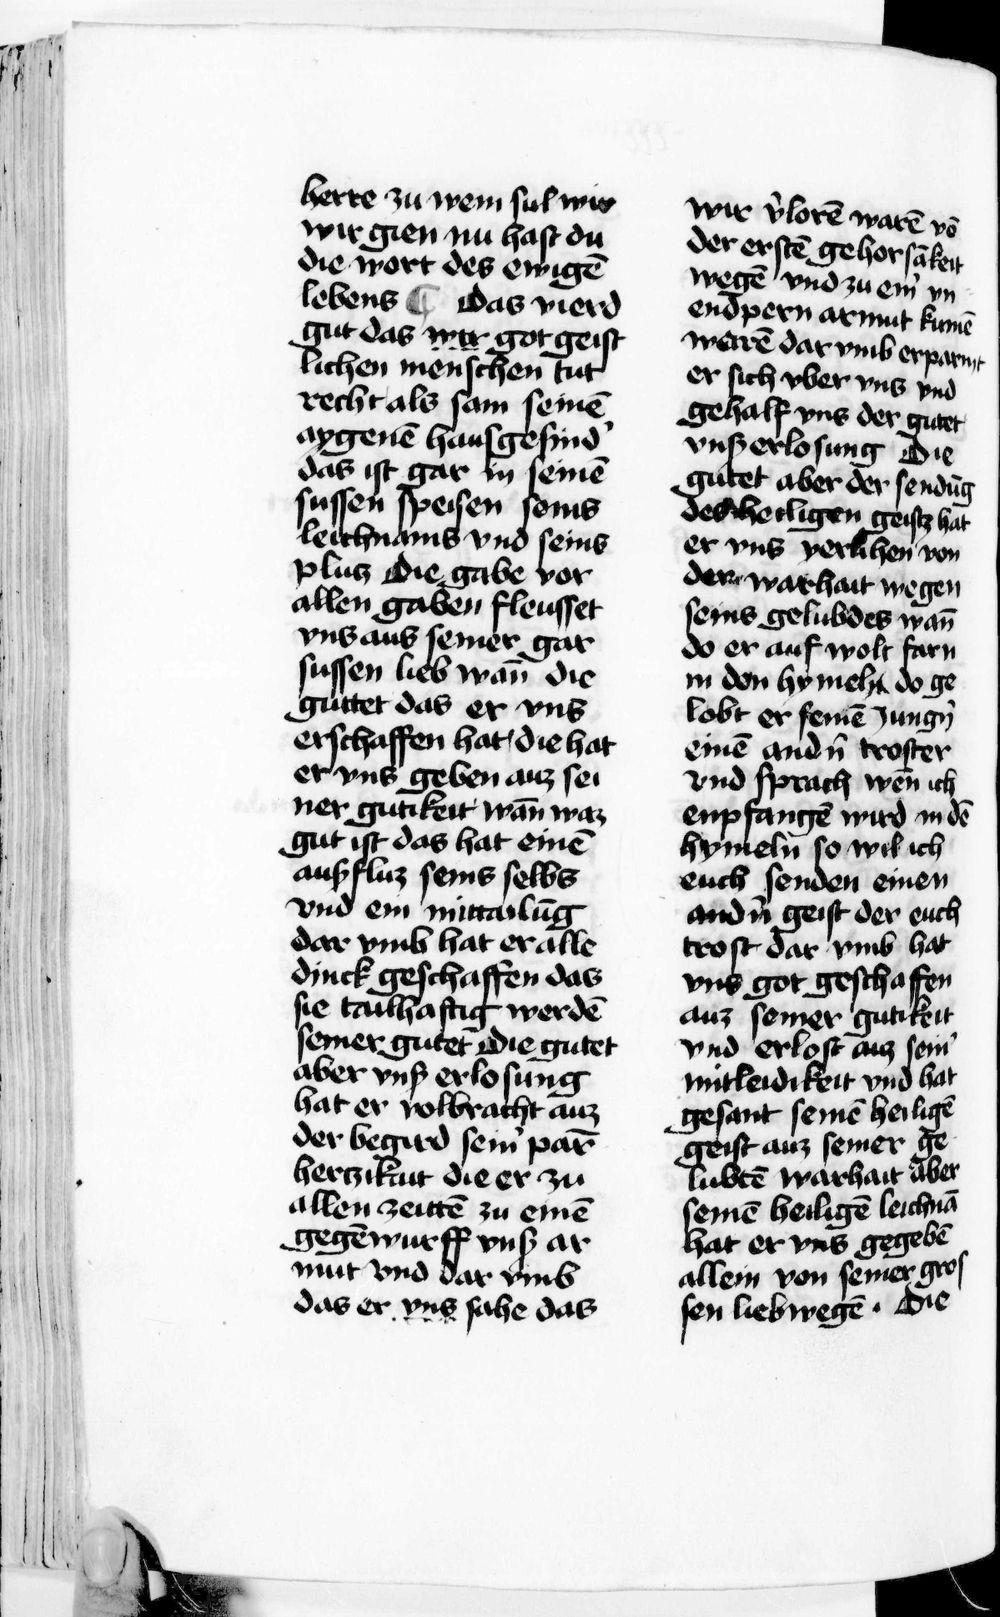 herre zu wem sul wir
wir gien nu hast du
die wort des ewigē
lebens ¶ Das vierd
gut das wir got geist
lichen menschen tut
recht als sam seinē
aygenē hausgesind'
das ist gar in seinē
sussen speisen seins
leichnams vnd seins
plutz Die gabe vor
allen gaben fleusset
vns aus seiner gar
sussen lieb wān die
guttet das er vns
erschaffen hat die hat
er vns geben auz sei
ner gutikeit wān waz
gut ist das hat einē
außfluz seins selbs
vnd ein mittailūg
dar vmb hat er alle
dinck geschaffen das
sie tailhaftig werdē
seiner gutet Die gutet
aber vnß erlosung
hat er volbracht auz
der begird sein' parm̄
hertzikait die er zu
allen zeittē zu einē
gegēwurff vnß ar
mut vnd dar vmb
das er vns sahe das
wir v̉lorē warē vō
der erstē gehorsākeit
wegē vnd zu ein' vn
endpern armut kumē
werē dar vmb erparmt
er sich vber vns vnd
gehalf vns der gutet
vnß erlosung Die
gutet aber der sendūg
des heiligen geistz hat
er vns verlihen von
der warhait wegen
seins gelubdes wān
do er auf wolt farn
in den hymeln do ge
lobt er seinē Jungn̄
einē andn̄ troster
vnd sprach wēn ich
enpfangē wird in dē
hymeln so wil ich
euch senden einen
andn̄ geist der euch
trost dar vmb hat
vns got geschaffen
auz seiner gutikeit
vnd erlost auz sein'
mitleidikeit vnd hat
gesant seinē heiligē
geist auz seiner ge
lubtē warhait aber
seinē heiligē leichnā
hat er vns gegebē
allein von seiner gros
sen lieb wegē. Die